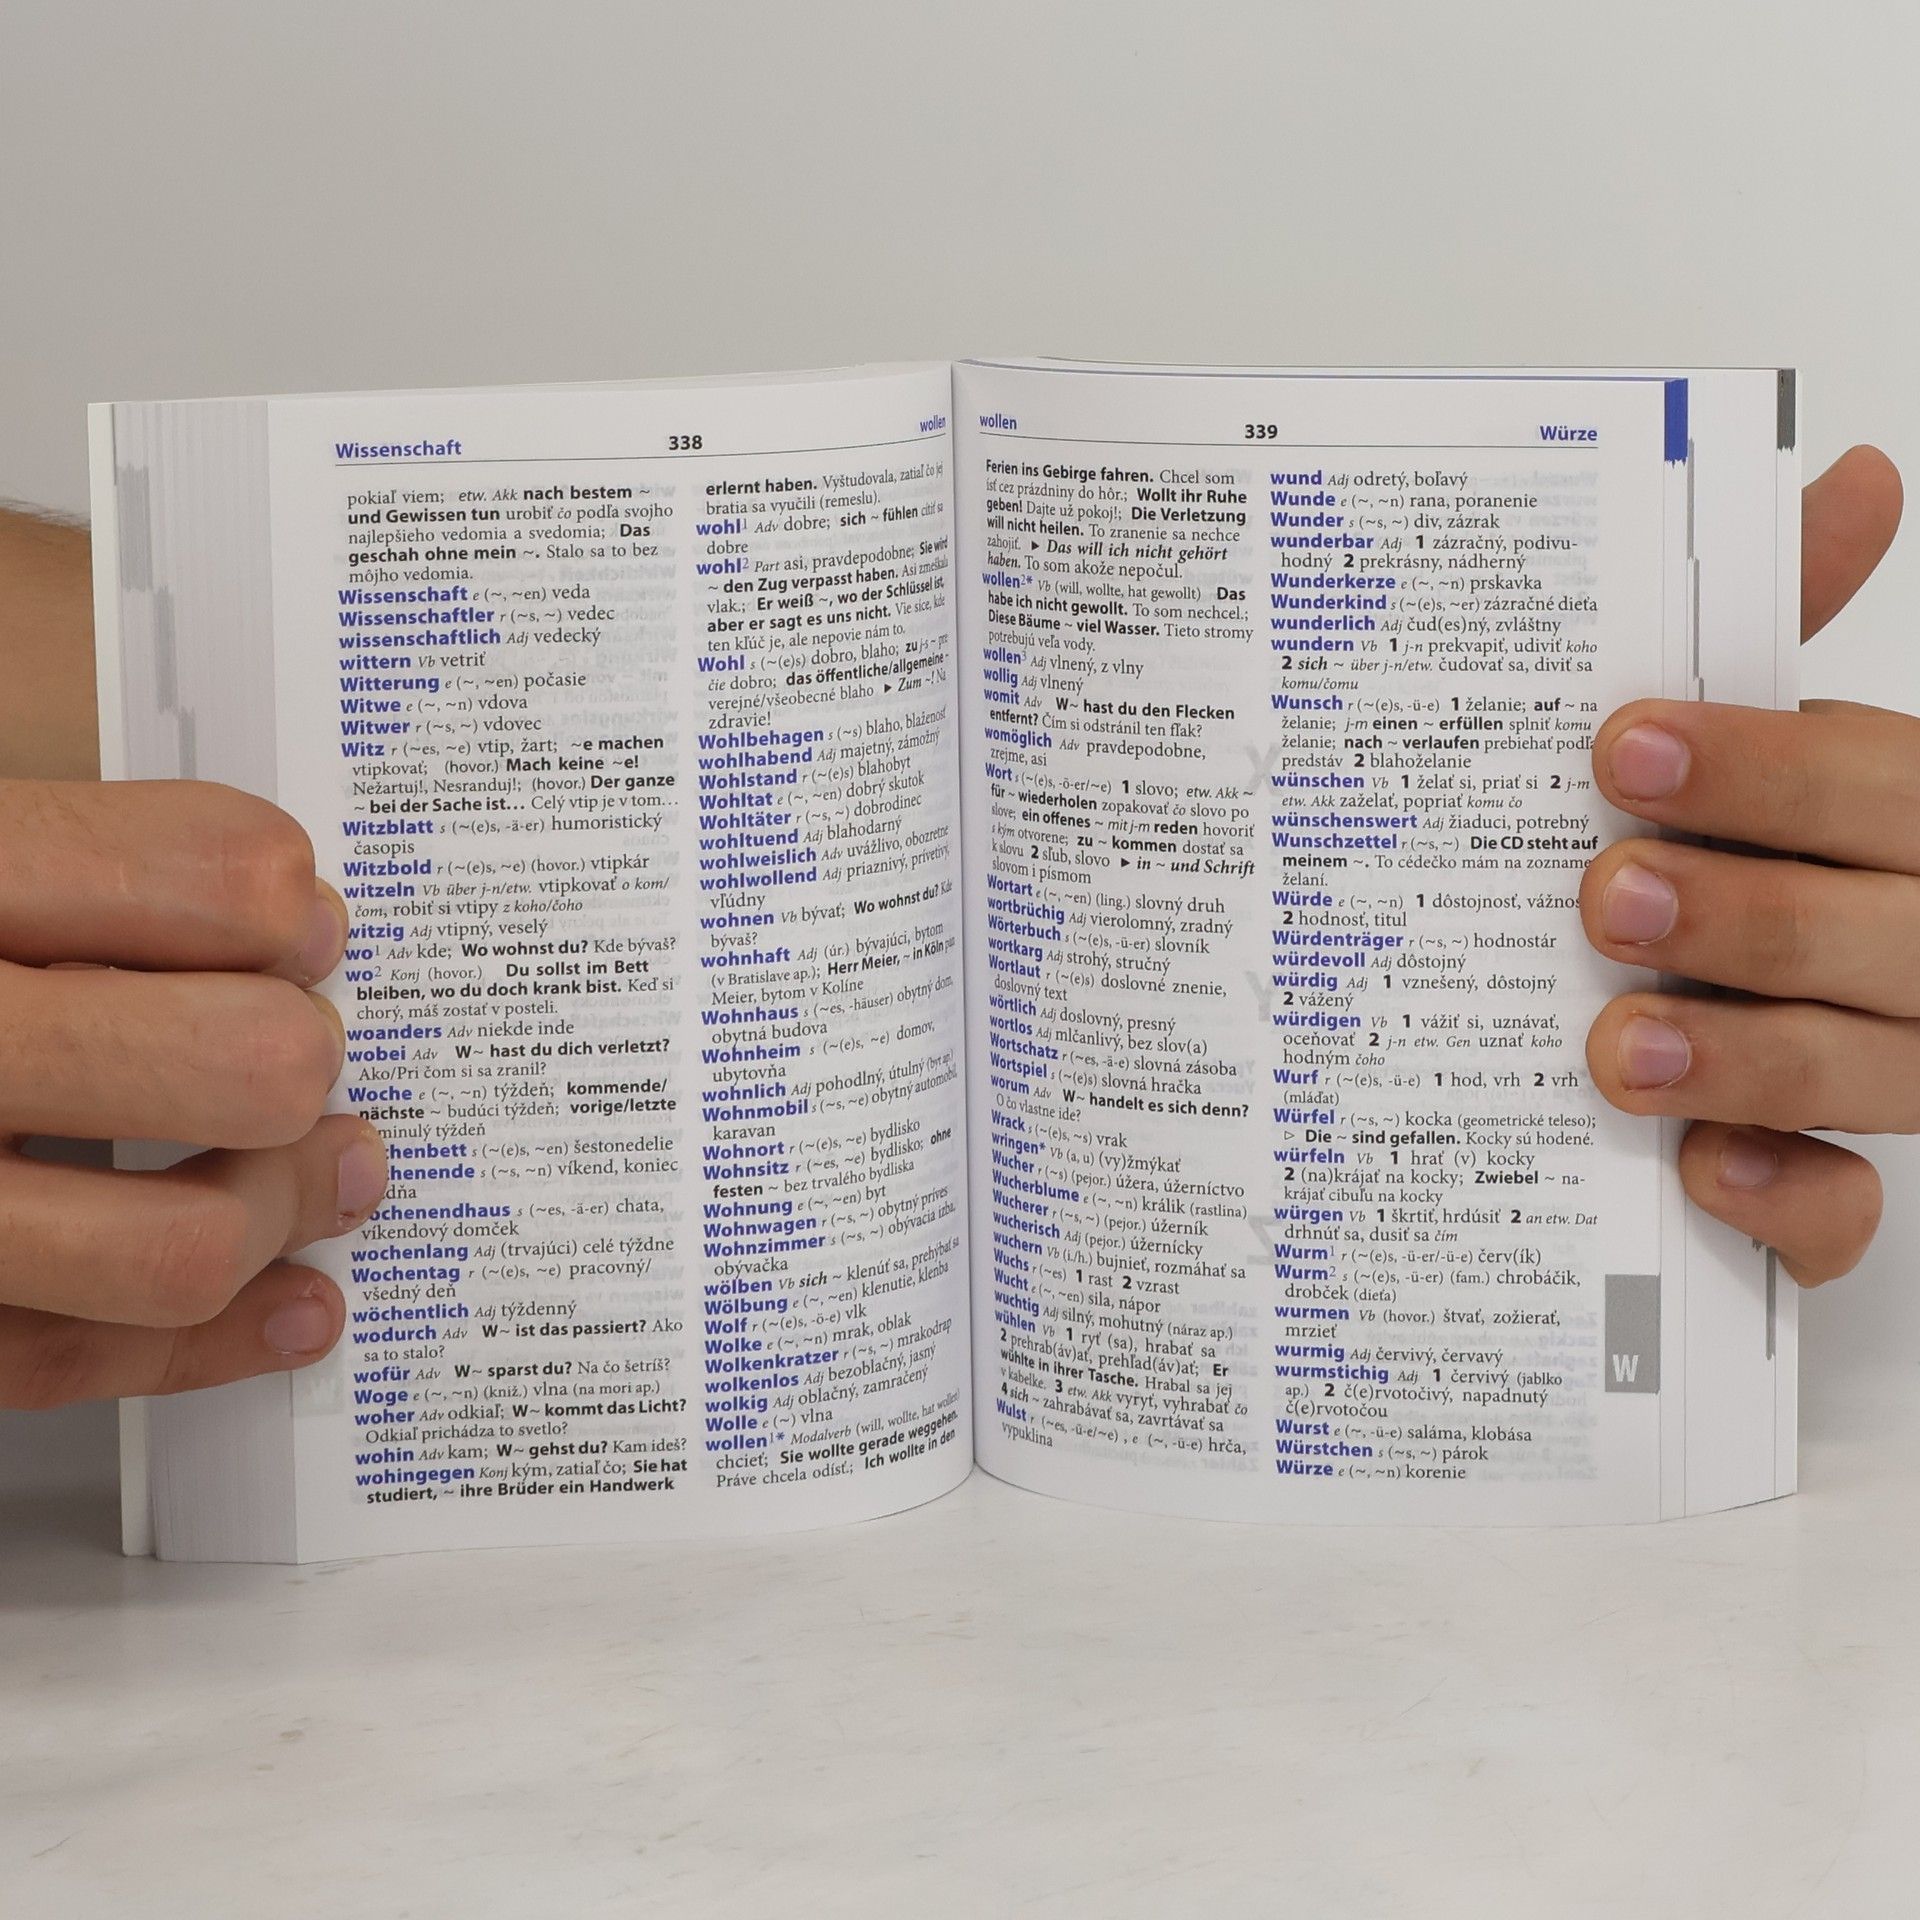 Wissenschaft 338 wollen
pokiaľ viem; etw. Akk nach bestem ~
und Gewissen tun urobiť čo podľa svojho
najlepšieho vedomia a svedomia; Das
geschah ohne mein ~. Stalo sa to bez
môjho vedomia.
Wissenschaft e (~, ~en) veda
Wissenschaftler r (~s, ~) vedec
wissenschaftlich Adj vedecký
wittern Vb vetriť
Witterung e (~, ~en) počasie
Witwe e (~, ~n) vdova
Witwer r (~s, ~) vdovec
Witz r (~es, ~e) vtip, žart; ~e machen
vtipkovať; (hovor.) Mach keine ~e!
Nežartuj!, Nesranduj!; (hovor.) Der ganze
~ bei der Sache ist... Celý vtip je v tom...
Witzblatt s (~(e)s, -ä-er) humoristický
časopis
Witzbold r (~(e)s, ~e) (hovor.) vtipkár
witzeln Vb über j-n/etw. vtipkovať o kom/
čom, robiť si vtipy z koho/čoho
witzig Adj vtipný, veselý
wo¹ Adv kde; Wo wohnst du? Kde bývaš?
wo² Konj (hovor.) Du sollst im Bett
bleiben, wo du doch krank bist. Keď si
chorý, máš zostať v posteli.
woanders Adv niekde inde
wobei Adv W~ hast du dich verletzt?
Ako/Pri čom si sa zranil?
Woche e (~, ~n) týždeň; kommende/
nächste ~ budúci týždeň; vorige/letzte
minulý týždeň
chenbett s (~(e)s, ~en) šestonedelie
chenende s (~s, ~n) víkend, koniec
dňa
ochenendhaus s (~es, -ä-er) chata,
víkendový domček
wochenlang Adj (trvajúci) celé týždne
Wochentag r (~(e)s, ~e) pracovný/
všedný deň
wöchentlich Adj týždenný
wodurch Adv W~ ist das passiert? Ako
sa to stalo?
wofür Adv W~ sparst du? Na čo šetríš?
Woge e (~, ~n) (kniž.) vlna (na mori ap.)
woher Adv odkiaľ; W~ kommt das Licht?
Odkiaľ prichádza to svetlo?
wohin Adv kam; W~ gehst du? Kam ideš?
wohingegen Konj kým, zatiaľ čo; Sie hat
studiert, ~ ihre Brüder ein Handwerk
erlernt haben. Vyštudovala, zatiaľ čo jej
bratia sa vyučili (remeslu).
wohl¹ Adv dobre; sich ~ fühlen cítiť sa
dobre
wohl² Part asi, pravdepodobne; Sie wird
~ den Zug verpasst haben. Asi zmeškala
vlak.; Er weiß ~, wo der Schlüssel ist,
aber er sagt es uns nicht. Vie síce, kde
ten kľúč je, ale nepovie nám to.
Wohl s (~(e)s) dobro, blaho; zu j-s ~ pre
čie dobro; das öffentliche/allgemeine ~
verejné/všeobecné blaho ► Zum ~! Na
zdravie!
Wohlbehagen s (~s) blaho, blaženosť
wohlhabend Adj majetný, zámožný
Wohlstand r (~(e)s) blahobyt
Wohltat e (~, ~en) dobrý skutok
Wohltäter r (~s, ~) dobrodinec
wohltuend Adj blahodarný
wohlweislich Adv uvážlivo, obozretne
wohlwollend Adj priaznivý, prívetivý,
vľúdny
wohnen Vb bývať; Wo wohnst du? Kde
bývaš?
wohnhaft Adj (úr.) bývajúci, bytom
(v Bratislave ap.); Herr Meier, ~ in Köln pan
Meier, bytom v Kolíne
Wohnhaus s (~es, -häuser) obytný dom,
obytná budova
Wohnheim s (~(e)s, ~e) domov,
ubytovňa
wohnlich Adj pohodlný, útulný (byt ap.)
Wohnmobil s (~s, ~e) obytný automobil,
karavan
Wohnort r (~(e)s, ~e) bydlisko
Wohnsitz r (~es, ~e) bydlisko; ohne
festen ~ bez trvalého bydliska
Wohnung e (~, ~en) byt
Wohnwagen r (~s, ~) obytný príves
Wohnzimmer s (~s, ~) obývacia izba,
obývačka
wölben Vb sich ~ klenúť sa, prehýbať sa
Wölbung e (~, ~en) klenutie, klenba
Wolf r (~(e)s, -ö-e) vlk
Wolke e (~, ~n) mrak, oblak
Wolkenkratzer r (~s, ~) mrakodrap
wolkenlos Adj bezoblačný, jasný
wolkig Adj oblačný, zamračený
Wolle e (~) vlna
wollen¹* Modalverb (will, wollte, hat wollen)
chcieť; Sie wollte gerade weggehen.
Práve chcela odísť.; Ich wollte in den
wollen 339 Würze
Ferien ins Gebirge fahren. Chcel som
ísť cez prázdniny do hôr.; Wollt ihr Ruhe
geben! Dajte už pokoj!; Die Verletzung
will nicht heilen. To zranenie sa nechce
zahojiť. ► Das will ich nicht gehört
haben. To som akože nepočul.
wollen²* Vb (will, wollte, hat gewollt) Das
habe ich nicht gewollt. To som nechcel.;
Diese Bäume ~ viel Wasser. Tieto stromy
potrebujú veľa vody.
wollen³ Adj vlnený, z vlny
wollig Adj vlnený
womit Adv W~ hast du den Flecken
entfernt? Čím si odstránil ten fľak?
womöglich Adv pravdepodobne,
zrejme, asi
Wort s (~(e)s, -ö-er/~e) 1 slovo; etw. Akk ~
für ~ wiederholen zopakovať čo slovo po
slove; ein offenes ~ mit j-m reden hovoriť
s kým otvorene; zu ~ kommen dostať sa
k slovu 2 sľub, slovo ► in ~ und Schrift
slovom i písmom
Wortart e (~, ~en) (ling.) slovný druh
wortbrüchig Adj vierolomný, zradný
Wörterbuch s (~(e)s, -ü-er) slovník
wortkarg Adj strohý, stručný
Wortlaut r (~(e)s) doslovné znenie,
doslovný text
wörtlich Adj doslovný, presný
wortlos Adj mlčanlivý, bez slov(a)
Wortschatz r (~es, -ä-e) slovná zásoba
Wortspiel s (~(e)s) slovná hračka
worum Adv W~ handelt es sich denn?
O čo vlastne ide?
Wrack s (~(e)s, ~s) vrak
wringen* Vb (a, u) (vy)žmýkať
Wucher r (~s) (pejor.) úžera, úžerníctvo
Wucherblume e (~, ~n) králik (rastlina)
Wucherer r (~s, ~) (pejor.) úžerník
wucherisch Adj (pejor.) úžernícky
wuchern Vb (i./h.) bujnieť, rozmáhať sa
Wuchs r (~es) 1 rast 2 vzrast
Wucht e (~, ~en) sila, nápor
wuchtig Adj silný, mohutný (náraz ap.)
wühlen Vb 1 ryť (sa), hrabať sa
2 prehrab(áv)ať, prehľad(áv)ať; Er
wühlte in ihrer Tasche. Hrabal sa jej
v kabelke. 3 etw. Akk vyryť, vyhrabať čo
4 sich ~ zahrabávať sa, zavrtávať sa
Wulst r (~es, -ü-e/~e) , e (~, -ü-e) hrča,
vypuklina
wund Adj odretý, boľavý
Wunde e (~, ~n) rana, poranenie
Wunder s (~s, ~) div, zázrak
wunderbar Adj 1 zázračný, podivu-
hodný 2 prekrásny, nádherný
Wunderkerze e (~, ~n) prskavka
Wunderkind s (~(e)s, ~er) zázračné dieťa
wunderlich Adj čud(es)ný, zvláštny
wundern Vb 1 j-n prekvapiť, udiviť koho
2 sich ~ über j-n/etw. čudovať sa, diviť sa
komu/čomu
Wunsch r (~(e)s, -ü-e) 1 želanie; auf ~ na
želanie; j-m einen ~ erfüllen splniť komu
želanie; nach ~ verlaufen prebiehať podľa
predstáv 2 blahoželanie
wünschen Vb 1 želať si, priať si 2 j-m
etw. Akk zaželať, popriať komu čo
wünschenswert Adj žiaduci, potrebný
Wunschzettel r (~s, ~) Die CD steht auf
meinem ~. To cédečko mám na zozname
želaní.
Würde e (~, ~n) 1 dôstojnosť, vážnos
2 hodnosť, titul
Würdenträger r (~s, ~) hodnostár
würdevoll Adj dôstojný
würdig Adj 1 vznešený, dôstojný
2 vážený
würdigen Vb 1 vážiť si, uznávať,
oceňovať 2 j-n etw. Gen uznať koho
hodným čoho
Wurf r (~(e)s, -ü-e) 1 hod, vrh 2 vrh
(mláďat)
Würfel r (~s, ~) kocka (geometrické teleso);
▷ Die ~ sind gefallen. Kocky sú hodené.
würfeln Vb 1 hrať (v) kocky
2 (na)krájať na kocky; Zwiebel ~ na-
krájať cibuľu na kocky
würgen Vb 1 škrtiť, hrdúsiť 2 an etw. Dat
drhnúť sa, dusiť sa čím
Wurm¹ r (~(e)s, -ü-er/-ü-e) červ(ík)
Wurm² s (~(e)s, -ü-er) (fam.) chrobáčik,
drobček (dieťa)
wurmen Vb (hovor.) štvať, zožierať,
mrzieť
wurmig Adj červivý, červavý
wurmstichig Adj 1 červivý (jablko
ap.) 2 č(e)rvotočivý, napadnutý
č(e)rvotočou
Wurst e (~, -ü-e) saláma, klobása
Würstchen s (~s, ~) párok
Würze e (~, ~n) korenie
W